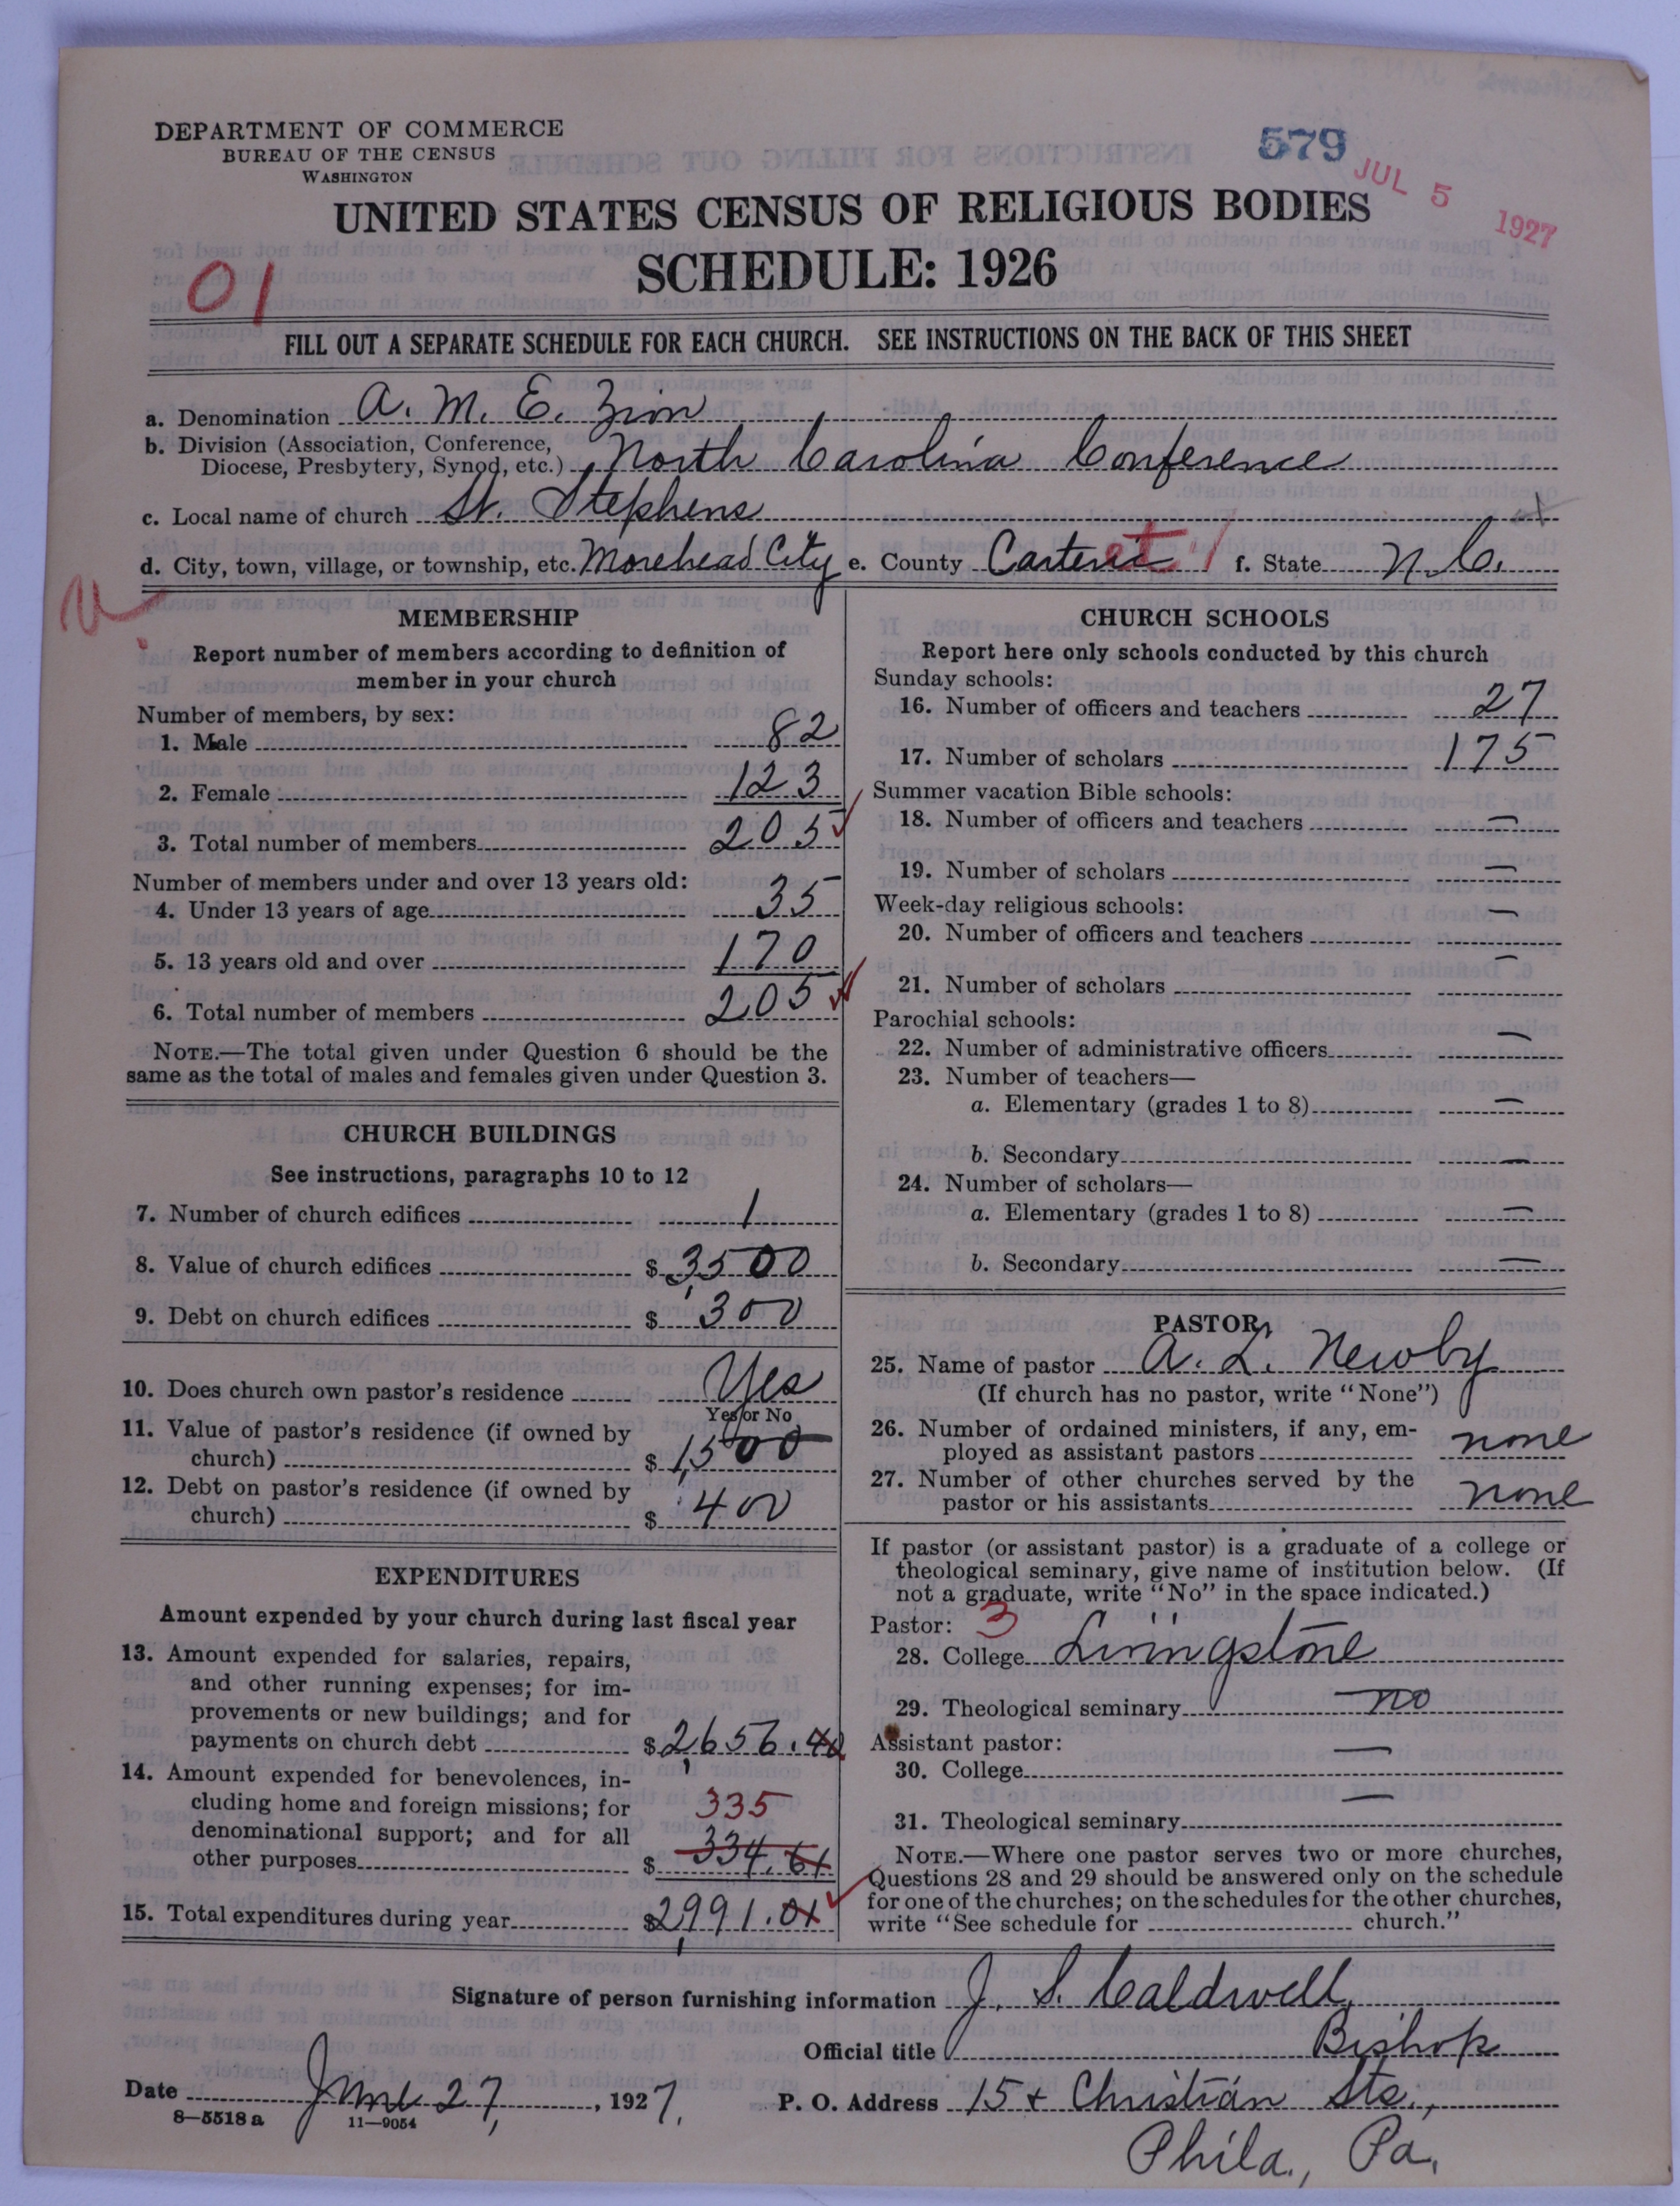 DEPARTMENT OF COMMERCE
BUREAU OF THE CENSUS
WASHINGTON
579
JUL 5 1927
UNITED STATES CENSUS OF RELIGIOUS BODIES
SCHEDULE: 1926
01
FILL OUT A SEPARATE SCHEDULE FOR EACH CHURCH. SEE INSTRUCTIONS ON THE BACK OF THIS SHEET
a. Denomination A. M. E. Zion
b. Division (Association, Conference,
Diocese, Presbytery, Synod, etc.) North Carolina Conference
c. Local name of church St. Stephens
d. City, town, village, or township, etc. Morehead City e. County Carteret f. State N.C.
MEMBERSHIP
Report number of members according to definition of
member in your church
Number of members, by sex:
1. Male 82
2. Female 123
3. Total number of members 205
Number of members under and over 13 years old:
4. Under 13 years of age 35
5. 13 years old and over 170
6. Total number of members 205
NOTE.—The total given under Question 6 should be the
same as the total of males and females given under Question 3.
CHURCH BUILDINGS
See instructions, paragraphs 10 to 12
7. Number of church edifices 1
8. Value of church edifices $ 3,500
9. Debt on church edifices $ 300
10. Does church own pastor's residence Yes
Yes or No
11. Value of pastor's residence (if owned by
church) $ 1,500
12. Debt on pastor's residence (if owned by
church) $ 400
EXPENDITURES
Amount expended by your church during last fiscal year
13. Amount expended for salaries, repairs,
and other running expenses; for im-
provements or new buildings; and for
payments on church debt $ 2,656.40
14. Amount expended for benevolences, in-
cluding home and foreign missions; for
denominational support; and for all
other purposes $ 334.61
335
15. Total expenditures during year $ 2,991.01
CHURCH SCHOOLS
Report here only schools conducted by this church
Sunday schools:
16. Number of officers and teachers 27
17. Number of scholars 175
Summer vacation Bible schools:
18. Number of officers and teachers —
19. Number of scholars —
Week-day religious schools:
20. Number of officers and teachers —
21. Number of scholars —
Parochial schools:
22. Number of administrative officers —
23. Number of teachers—
a. Elementary (grades 1 to 8) —
b. Secondary —
24. Number of scholars—
a. Elementary (grades 1 to 8) —
b. Secondary —
PASTOR
25. Name of pastor A. L. Newby
(If church has no pastor, write "None")
26. Number of ordained ministers, if any, em-
ployed as assistant pastors none
27. Number of other churches served by the
pastor or his assistants none
If pastor (or assistant pastor) is a graduate of a college or
theological seminary, give name of institution below. (If
not a graduate, write "No" in the space indicated.)
Pastor: 3
28. College Livingstone
29. Theological seminary no
Assistant pastor:
30. College —
31. Theological seminary —
NOTE.—Where one pastor serves two or more churches,
Questions 28 and 29 should be answered only on the schedule
for one of the churches; on the schedules for the other churches,
write "See schedule for church."
Signature of person furnishing information J. S. Caldwell
Official title Bishop
Date June 27, 1927. P. O. Address 15 + Christian Sts.,
8—5518 a 11—9054
Phila., Pa.